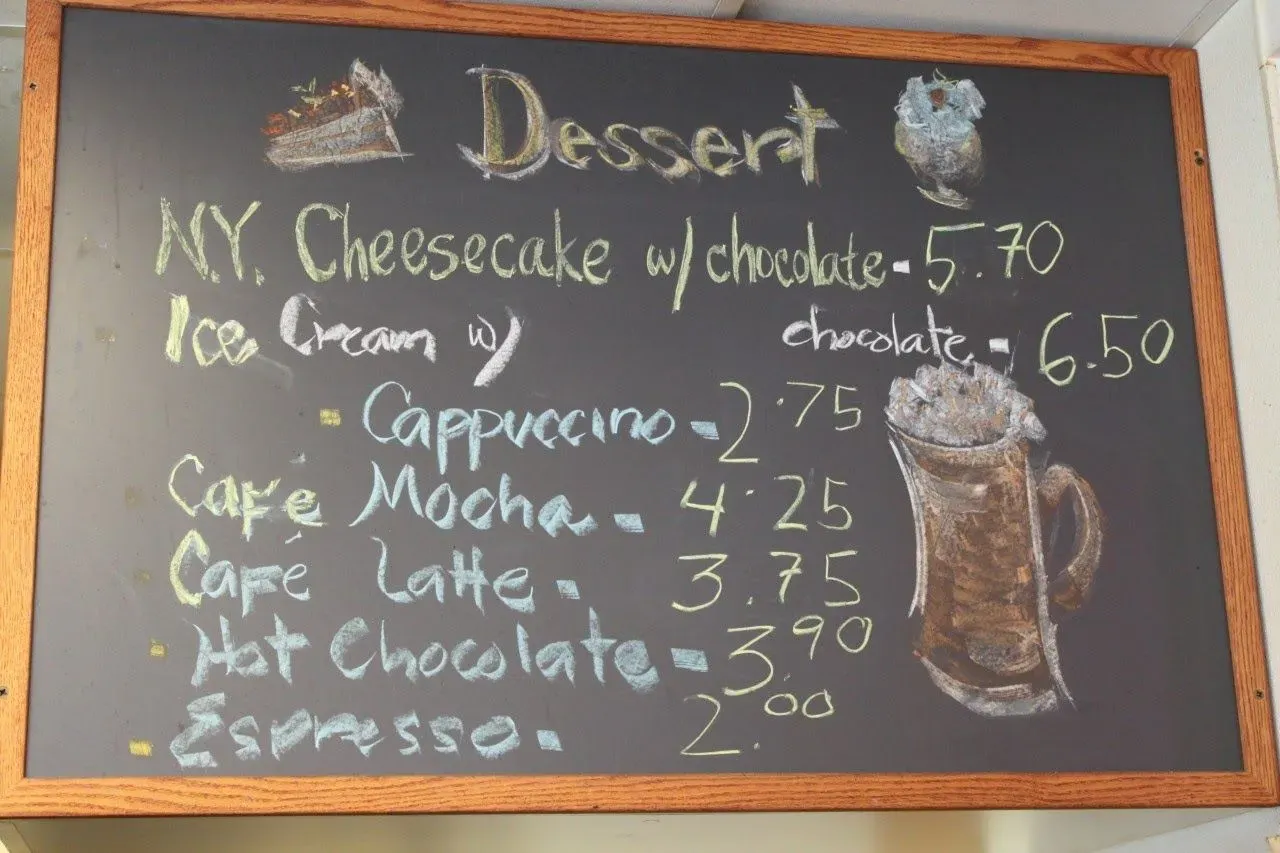 Dessert
N.Y. Cheesecake w/ chocolate - 5.70
Ice Cream w/ chocolate - 6.50
Cappuccino - 2.75
Café Mocha - 4.25
Café Latte - 3.75
Hot Chocolate - 3.90
Espresso - 2.00